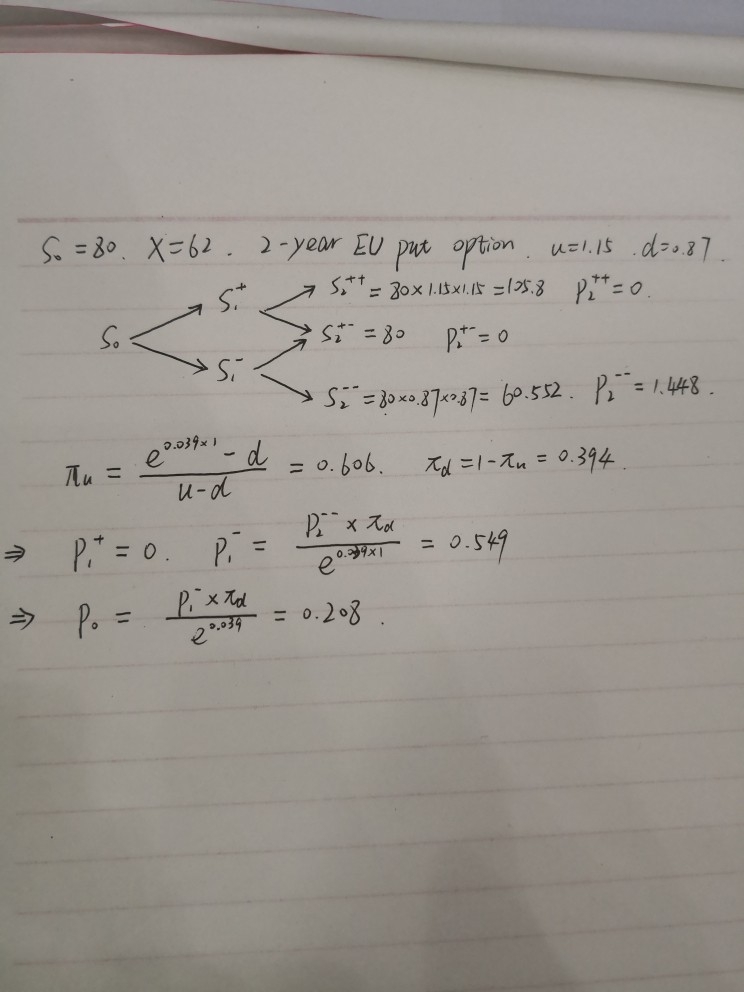 S₀ = 80. X = 62. 2-year EU put option. u=1.15. d=0.87.
S₁⁺ S₂⁺⁺ = 80×1.15×1.15 = 105.8 P₂⁺⁺ = 0.
S₀ S₂⁺⁻ = 80 P₂⁺⁻ = 0
S₁⁻ S₂⁻⁻ = 80×0.87×0.87 = 60.552. P₂⁻⁻ = 1.448.
πu = (e^(0.039×1) - d)/(u-d) = 0.606. πd = 1-πu = 0.394.
⇒ P₁⁺ = 0. P₁⁻ = (P₂⁻⁻ × πd)/e^(0.039×1) = 0.549
⇒ P₀ = (P₁⁻ × πd)/e^(0.039) = 0.208.